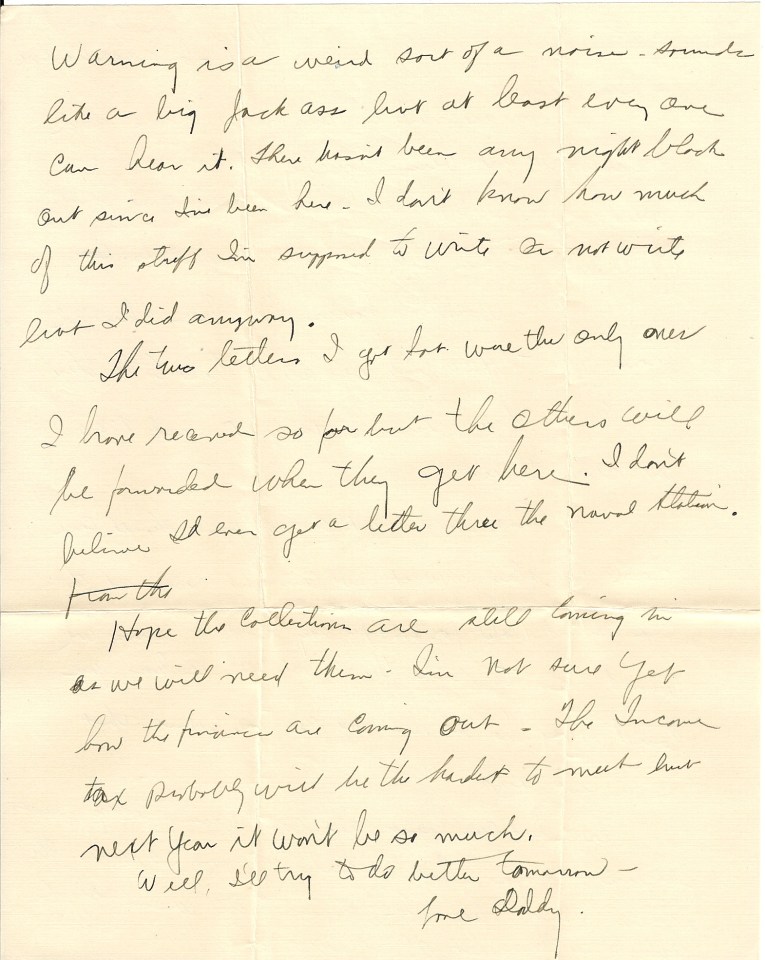 Warning is a weird sort of a noise - sounds
like a big Jack ass but at least every one
can hear it. There hasn't been any night black
out since I've been here - I don't know how much
of this stuff I'm supposed to write or not write
but I did anyway.
The two letters I got were the only ones
I have received so far but the others will
be forwarded when they get here. I don't
believe I'd ever get a letter three the naval station.
from the
Hope the collections are still coming in
as we will need them - I'm not sure yet
how the finance are coming out - The Income
tax probably will be the hardest to meet but
next year it won't be so much.
Well, I'll try to do better tomorrow -
Love Daddy.